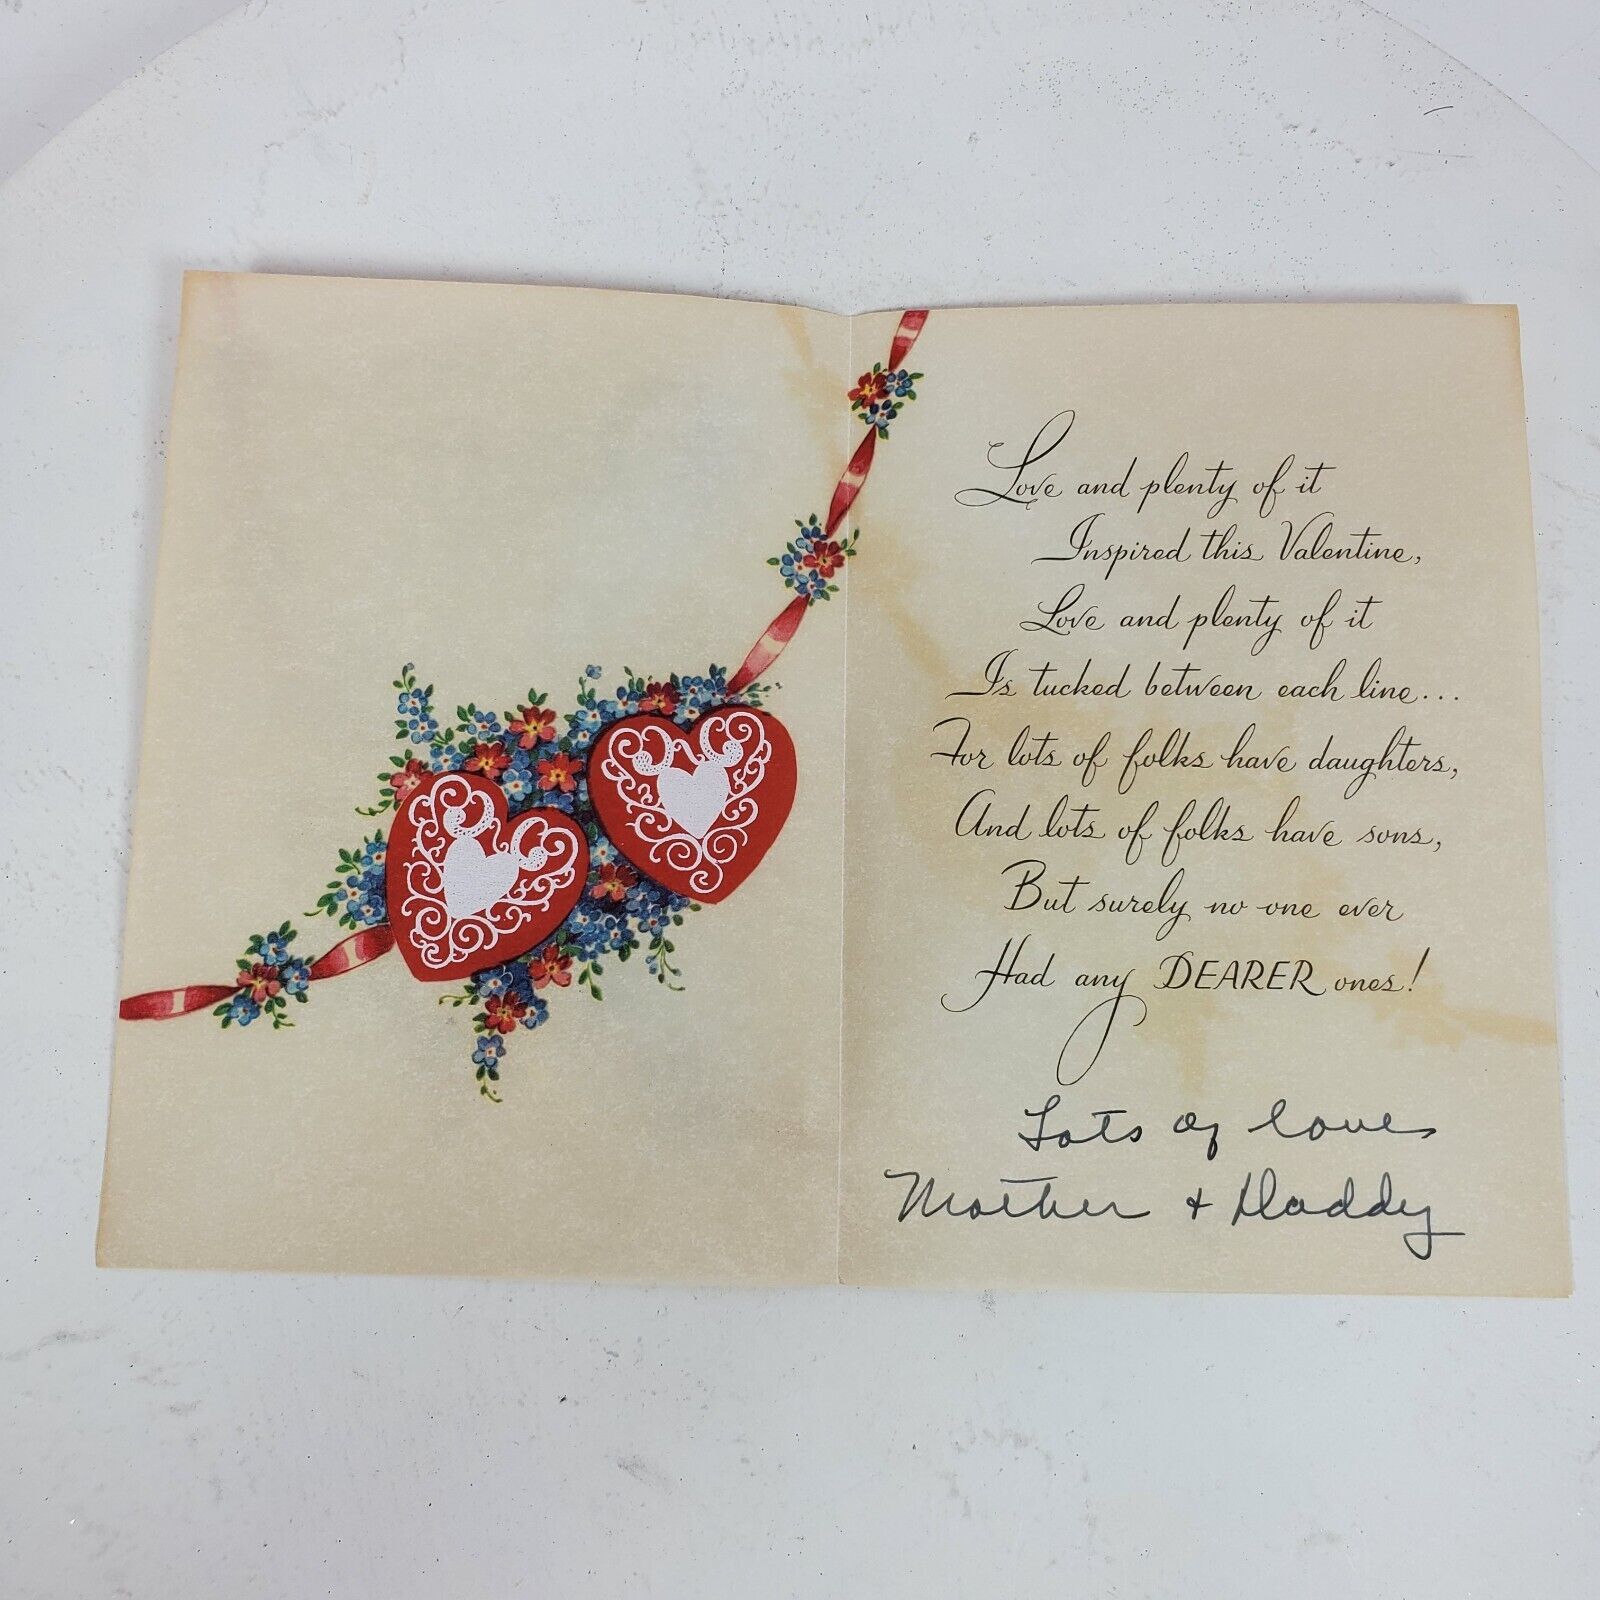 Love and plenty of it
Inspired this Valentine,
Love and plenty of it
Is tucked between each line...
For lots of folks have daughters,
And lots of folks have sons,
But surely no one ever
Had any DEARER ones!
Lots of love
Mother + Daddy